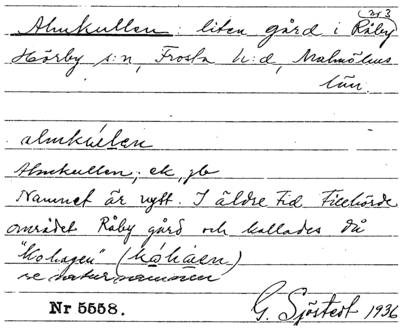 nr 3
Almkullen: liten gård i Råby
Hörby s:n, Frosta h:d, Malmöhus
län.
almkúlen
Almkullen; ek, jb
Namnet är nytt. I äldre tid tillhörde
området Råby gård och kallades då
"Kohagen" (kóháen)
se naturnamnen
Nr 5558. G. Sjöstedt 1936